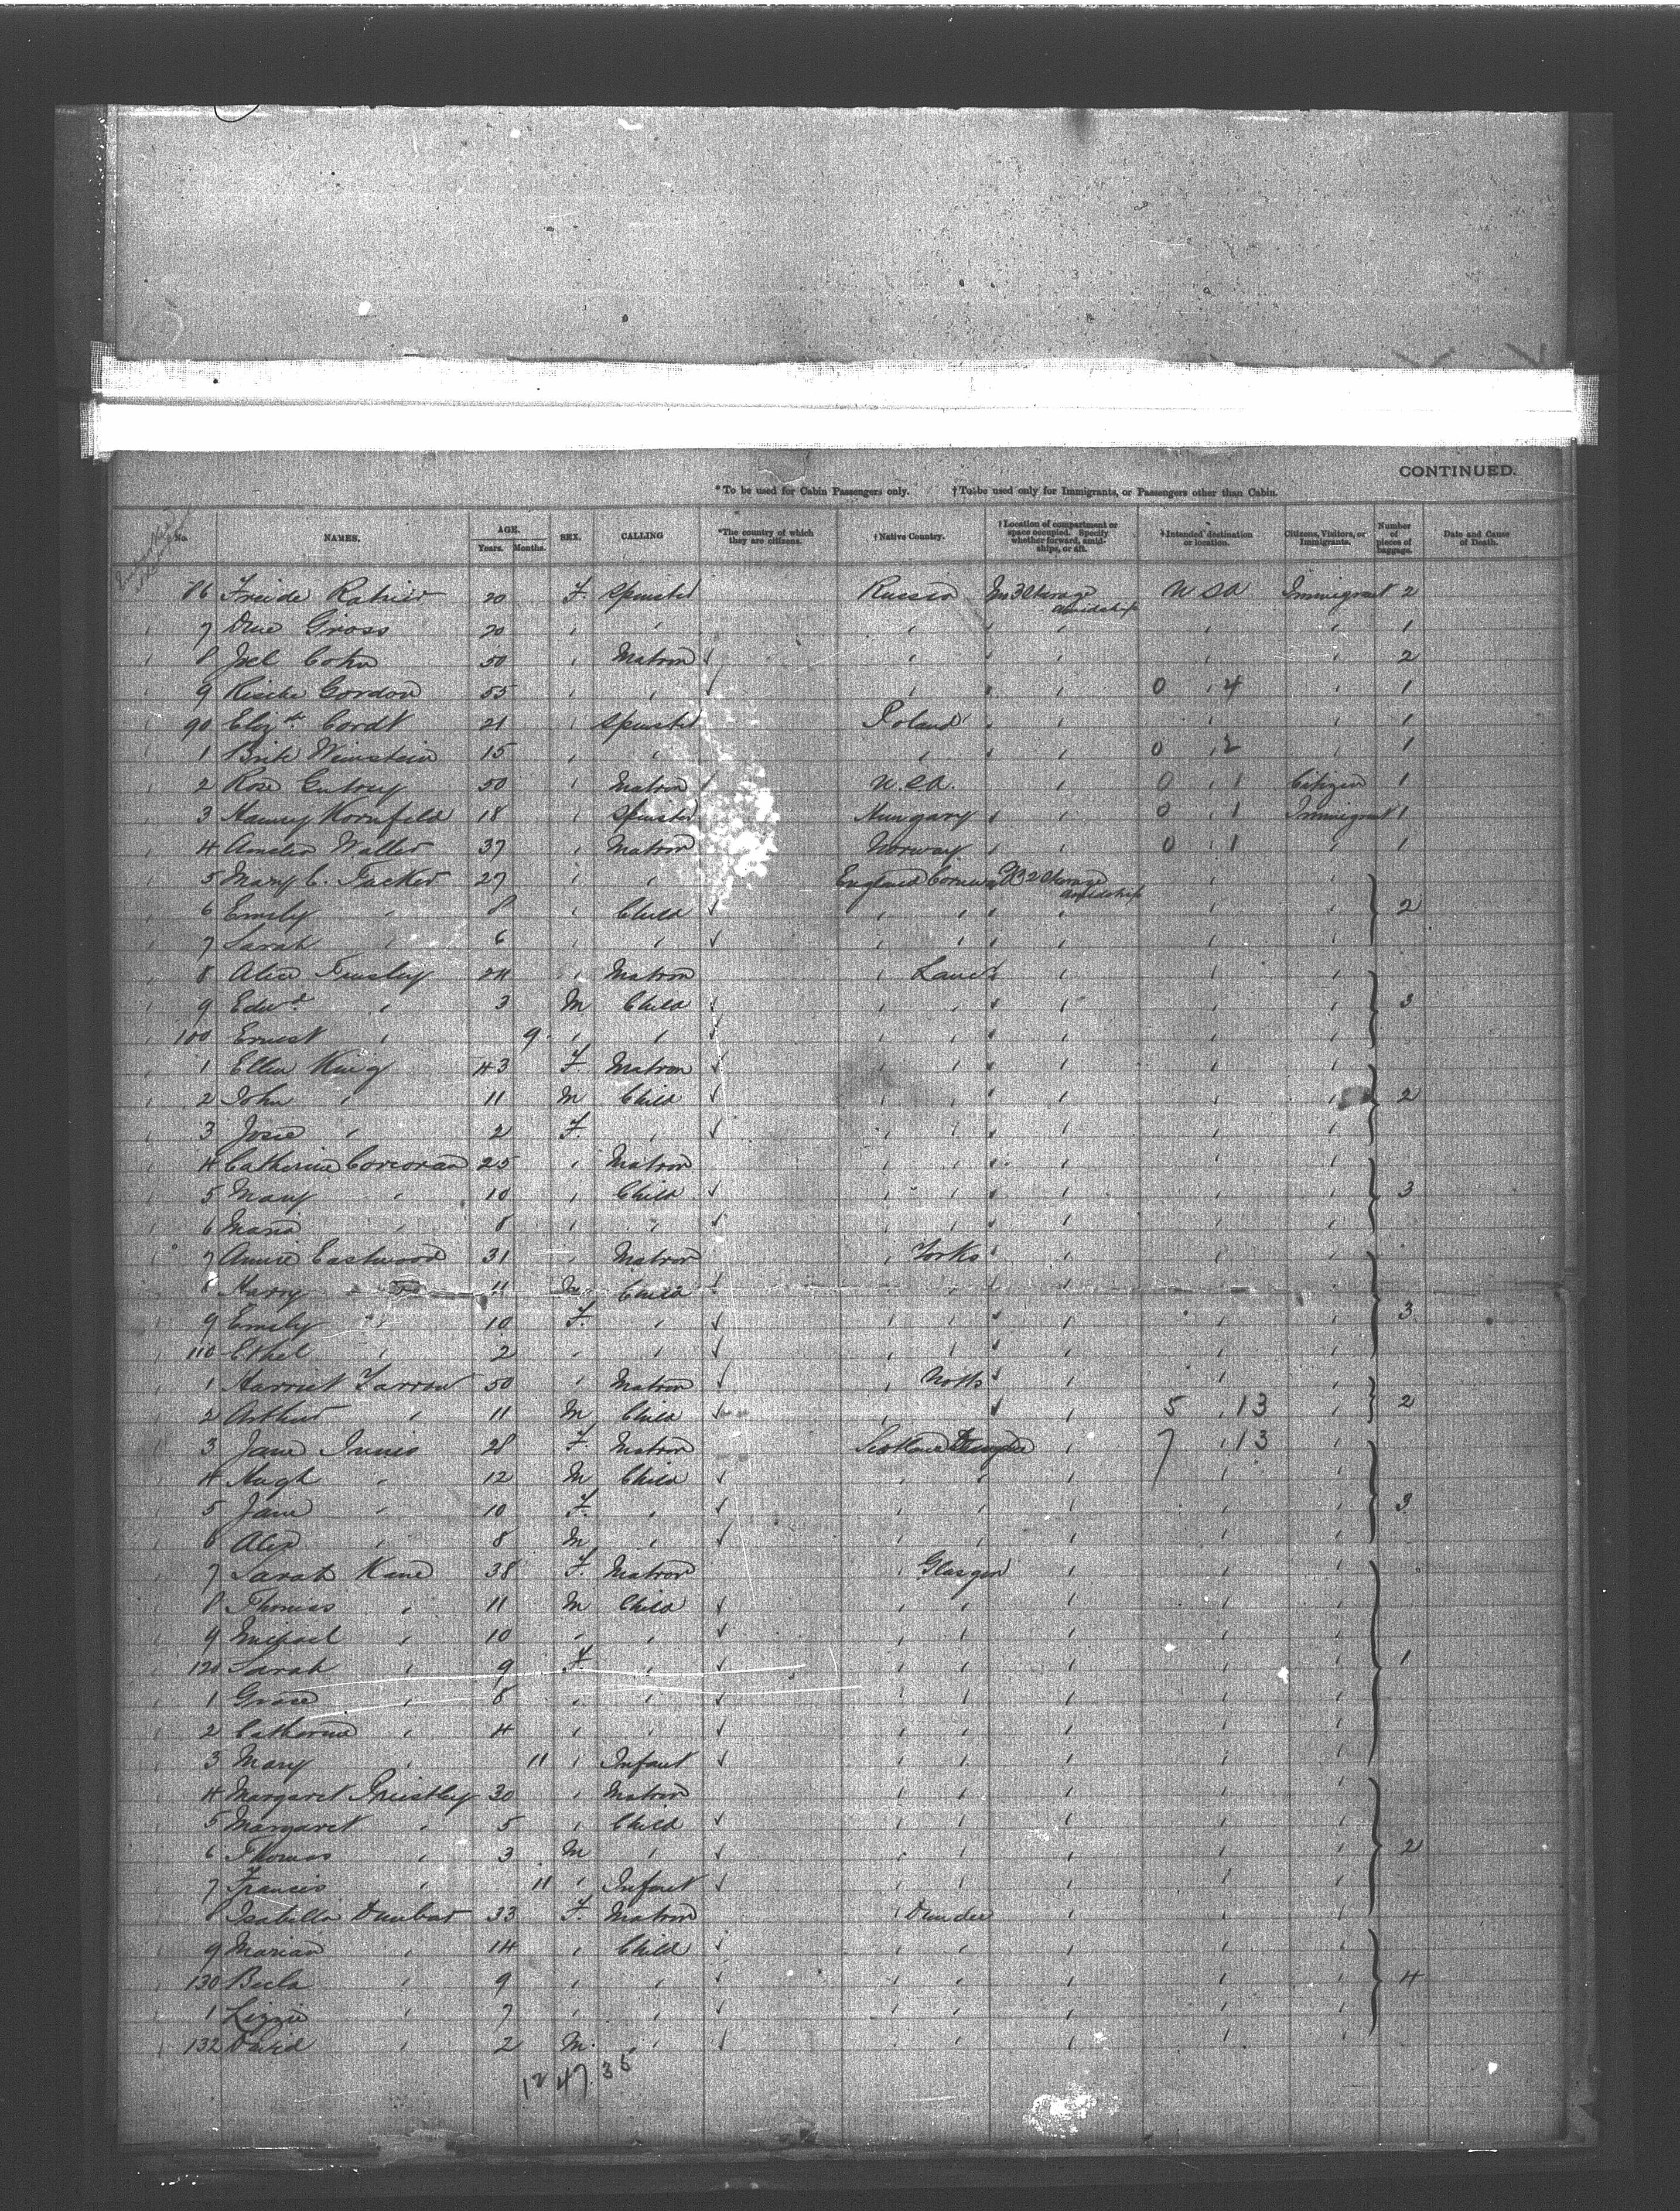 CONTINUED.
*To be used for Cabin Passengers only. †To be used only for Immigrants, or Passengers other than Cabin.
No. NAMES. AGE. Years. Months. SEX. CALLING *The country of which they are citizens. †Native Country. †Location of compartment or space occupied. Specify whether forward, amidships, or aft. †Intended destination or location. Citizens, Visitors, or Immigrants. Number of pieces of baggage. Date and Cause of Death.
86 20 F. Spinster Russia Amidship USA Immigrant 2
7 Gross 20 " " " " " " 1
8 Cohn 50 " Matron " " " " 2
9 Gordon 55 " " " " " 0 " 4 " 1
90 Elizth Cordt 21 " Spinster Poland " " " " 1
1 Weinstein 15 " " " " 0 " 2 " 1
2 Rose 50 " Matron U.S.A. " 0 " 1 Citizen 1
3 Kornfeld 18 " Spinster Hungary " " 0 " 1 Immigrant 1
4 37 " Matron Norway " " 0 " 1 " 1
5 Mary C. Tucker 27 " " England Amidship " "
6 Emily " 8 " Child " " " " " " 2
7 Sarah " 6 " " " " " " " "
8 Alice 24 " Matron " " " " "
9 Edwd " 3 M Child " " " " " " 3
100 Ernest " 9 " " " " " " " "
1 Ellen King 43 F. Matron " " " " " "
2 John " 11 M Child " " " " " " 2
3 Josie " 2 F. " " " " " " "
4 Catherine Corcoran 25 " Matron " " " " " "
5 Mary " 10 " Child " " " " " " 3
6 Maria " 8 " " " " " " " "
7 Annie Eastwood 31 " Matron " Yorks " " " "
8 Harry " 11 M Child " " " " " "
9 Emily " 10 F. " " " " " " " 3
110 Ethel " 2 " " " " " " " "
1 Harriet 50 " Matron " Notts " " " "
2 Arthur " 11 M Child " " " 5 " 13 " 2
3 Jane Innis 28 F. Matron Scotland " 7 " 13 "
4 Hugh " 12 M Child " " " " "
5 Jane " 10 F. " " " " " " 3
6 Alex " 8 M " " " " " "
7 Sarah Kane 38 F. Matron " Glasgow " " "
8 Thomas " 11 M Child " " " " "
9 Michael " 10 " " " " " " "
120 Sarah " 9 F. " " " " " " 1
1 Grace " 8 " " " " " " "
2 Catherine " 4 " " " " " " "
3 Mary " 11 " Infant " " " " "
4 Margaret Priestley 30 " Matron " " " " "
5 Margaret " 5 " Child " " " " "
6 Thomas " 3 M " " " " " " 2
7 Francis " 11 " Infant " " " " "
8 Isabella Dunbar 33 F. Matron " Dundee " " "
9 Marian " 14 " Child " " " " "
130 " 9 " " " " " " " 4
1 Lizzie " 7 " " " " " " "
132 David " 2 M. " " " " " "
12 47 35